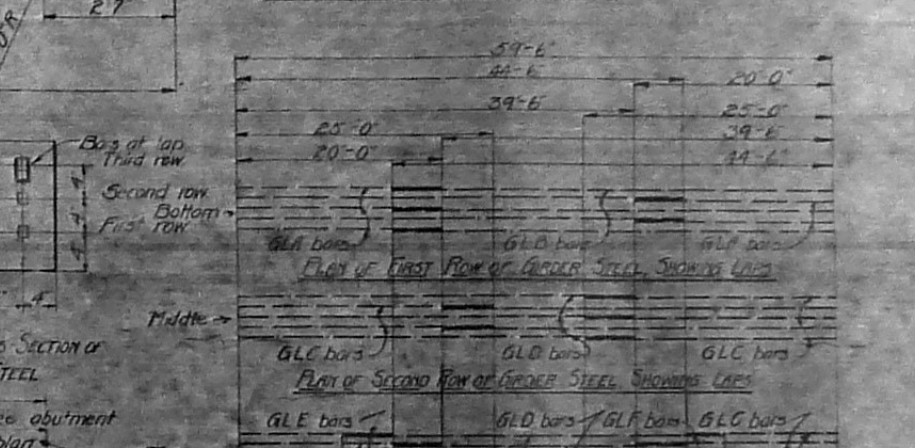 2'7"
59'-6"
44'-6"
20'-0"
39'-6"
25'-0"
25'-0"
39'-6"
20'-0"
44'-6"
Bars at lap
Third row
Second row
Bottom
First row
4" 4" 4"
GLA bars
GLB bars
GLA bars
PLAN OF FIRST ROW OF GIRDER STEEL, SHOWING LAPS
4"
Middle
GLC bars
GLD bars
GLC bars
SECTION OF
STEEL
PLAN OF SECOND ROW OF GIRDER STEEL, SHOWING LAPS
abutment
plan
GLE bars
GLD bars
GLF bars
GLC bars